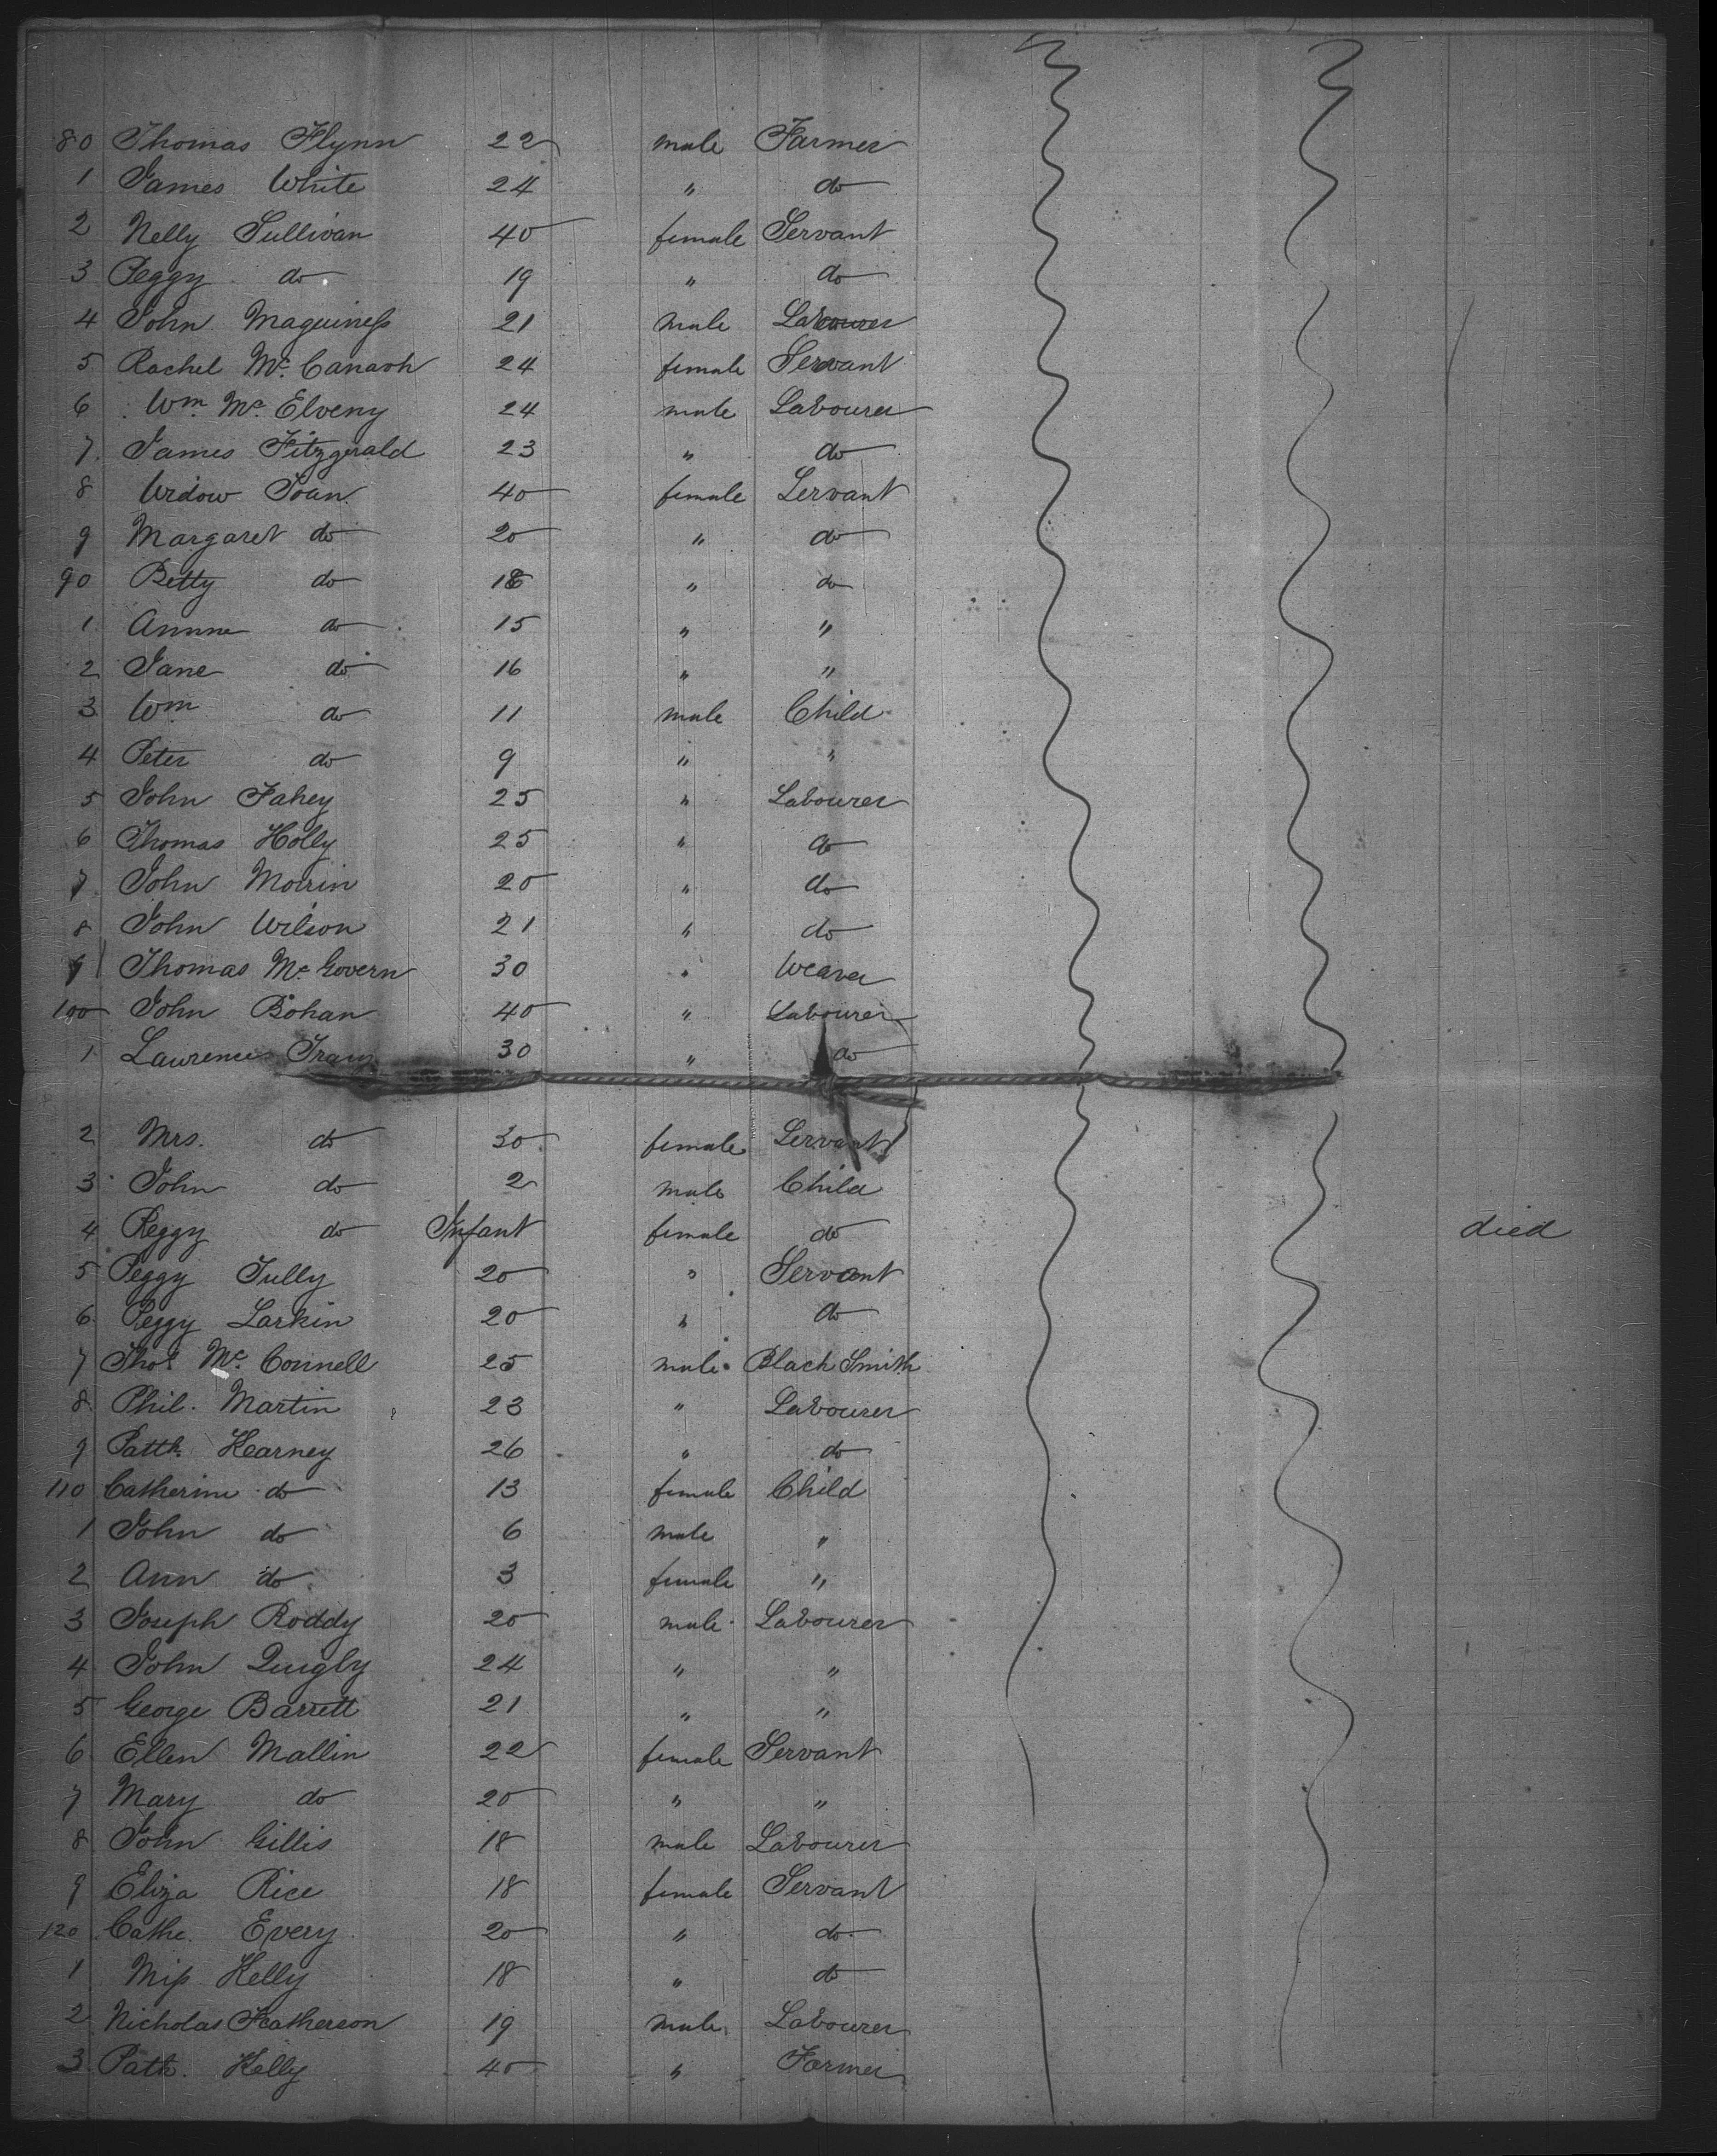 80 Thomas Flynn 22 male Farmer
1 James White 24 " do
2 Nelly Sullivan 40 female Servant
3 Peggy do 19 " do
4 John Maguiness 21 male Labourer
5 Rachel Mc. Canavh 24 female Servant
6 Wm. Mc. Elveny 24 male Labourer
7. James Fitzgerald 23 " do
8 Widow Toan 40 female Servant
9 Margaret do 20 " do
90 Betty do 18 " do
1 Annne do 15 " "
2 Jane do 16 " "
3 Wm do 11 male Child
4 Peter do 9 " "
5 John Fahey 25 " Labourer
6 Thomas Holly 25 " do
7. John Morrin 20 " do
8 John Wilson 21 " do
9 Thomas Mc Govern 30 " Weaver
100 John Bohan 40 " Labourer
1 Lawrence 30 " do
2 Mrs. do 30 female Servant
3 John do 2 male Child
4 Peggy do Infant female do died
5 Peggy Tully 20 " Servant
6 Peggy Larkin 20 " do
7 Thos. Mc. Connell 25 male Black Smith
8 Phil. Martin 23 " Labourer
9 Patth. Kearney 26 " do
110 Catherine do 13 female Child
1 John do 6 male "
2 Ann do 3 female "
3 Joseph Roddy 20 male Labourer
4 John Quigly 24 " "
5 George Barrett 21 " "
6 Ellen Mallin 22 female Servant
7 Mary do 20 " "
8 John Gillis 18 male Labourer
9 Eliza Rice 18 female Servant
120 Cathe. Every 20 " do
1 Miss Kelly 18 " do
2 Nicholas Featherson 19 male Labourer
3 Patk. Kelly 40 " Farmer